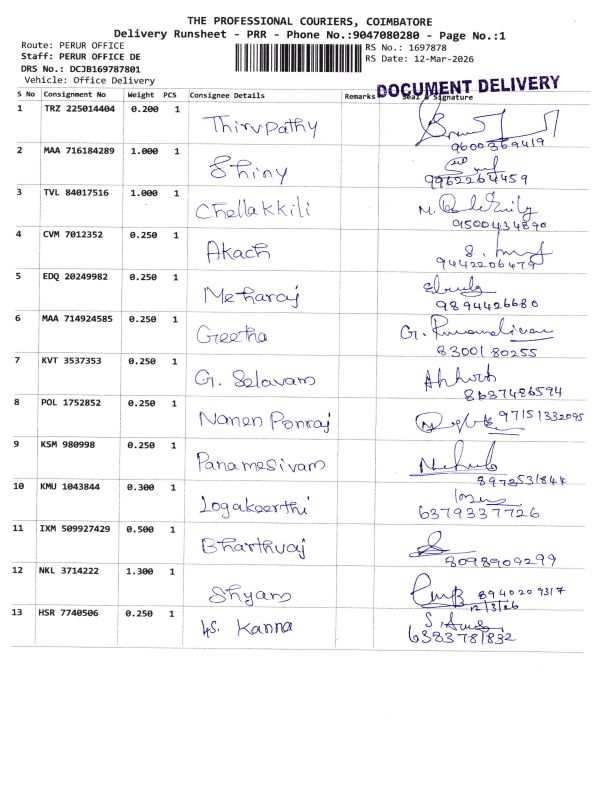 THE PROFESSIONAL COURIERS, COIMBATORE
Delivery Runsheet - PRR - Phone No.:9047080280 - Page No.:1
Route: PERUR OFFICE
RS No.: 1697878
Staff: PERUR OFFICE DE
RS Date: 12-Mar-2026
DRS No.: DCJB169787801
Vehicle: Office Delivery
DOCUMENT DELIVERY
S No Consignment No Weight PCS Consignee Details Remarks Seal & Signature
1 TRZ 225014404 0.200 1 Thirupathy
9600369419
2 MAA 716184289 1.000 1 Shiny
9962264459
3 TVL 84017516 1.000 1 Chellakkili
9500434890
4 CVM 7012352 0.250 1 Akach
9442206479
5 EDQ 20249982 0.250 1 Metharaj
9894426680
6 MAA 714924585 0.250 1 Geetha
8300180255
7 KVT 3537353 0.250 1 G. Selavam
8637486594
8 POL 1752852 0.250 1 Nanen Ponraj
9 KSM 980998 0.250 1 Panamesivam
8978531844
10 KMU 1043844 0.300 1 Logakeerthi
6379337726
11 IXM 509927429 0.500 1 Bharthvaj
8098909299
12 NKL 3714222 1.300 1 Shyam
8940209317
12/3/26
13 HSR 7740506 0.250 1 Kanna
6383781832